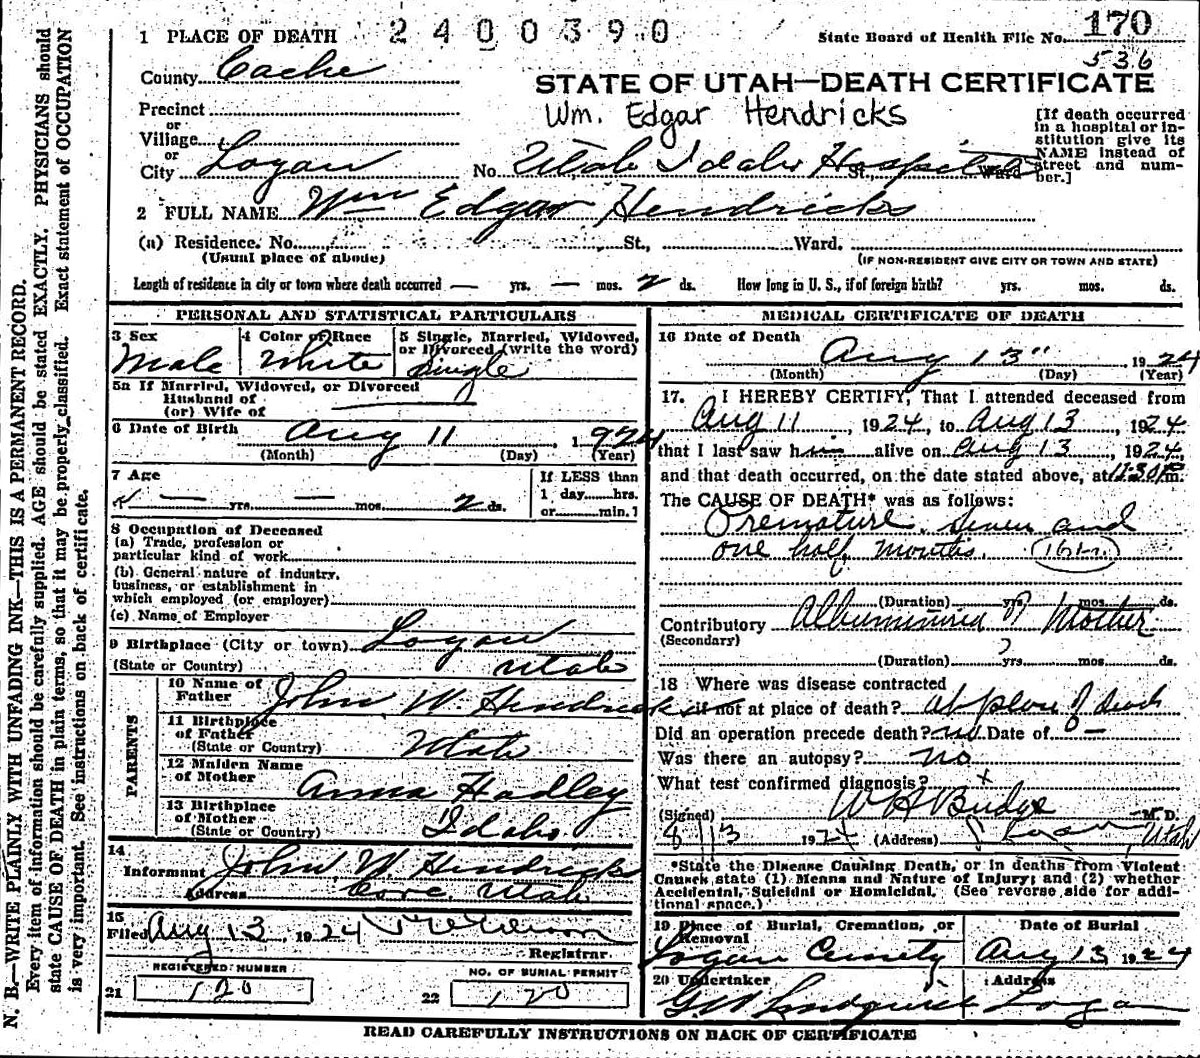 2400390
State Board of Health File No. 170
536
1 PLACE OF DEATH
County Cache
STATE OF UTAH—DEATH CERTIFICATE
Precinct
or
Village
or
City Logan
Wm. Edgar Hendricks
[If death occurred
in a hospital or in-
stitution give its
NAME instead of
street and num-
ber.]
No. Utah Idaho Hospital St., Ward
2 FULL NAME Wm Edgar Hendricks
(a) Residence. No. St., Ward.
(Usual place of abode)
(IF NON-RESIDENT GIVE CITY OR TOWN AND STATE)
Length of residence in city or town where death occurred — yrs. — mos. 2 ds. How long in U. S., if of foreign birth? yrs. mos. ds.
PERSONAL AND STATISTICAL PARTICULARS
3 Sex
Male
4 Color or Race
White
5 Single, Married, Widowed,
or Divorced (write the word)
Single
5a If Married, Widowed, or Divorced
Husband of
(or) Wife of
6 Date of Birth Aug 11, 1924
(Month) (Day) (Year)
7 Age
— yrs. — mos. 2 ds.
If LESS than
1 day......hrs.
or......min.?
8 Occupation of Deceased
(a) Trade, profession or
particular kind of work
(b) General nature of industry,
business, or establishment in
which employed (or employer)
(c) Name of Employer
9 Birthplace (City or town) Logan
(State or Country) Utah
PARENTS
10 Name of
Father John W. Hendricks
11 Birthplace
of Father
(State or Country) Utah
12 Maiden Name
of Mother Anna Hadley
13 Birthplace
of Mother
(State or Country) Idaho.
14
Informant John W. Hendricks
Address Cove, Utah
15
Filed Aug 13, 1924
Registrar
REGISTERED NUMBER
21 120
NO. OF BURIAL PERMIT
22 120
MEDICAL CERTIFICATE OF DEATH
16 Date of Death
Aug 13" 1924
(Month) (Day) (Year)
17. I HEREBY CERTIFY, That I attended deceased from
Aug 11, 1924, to Aug 13, 1924
that I last saw him alive on Aug 13, 1924,
and that death occurred, on the date stated above, at 11:30 P.m.
The CAUSE OF DEATH* was as follows:
Premature. seven and
one half months.
(Duration) yrs. mos. ds.
Contributory Albuminuria of Mother
(Secondary)
(Duration) ? yrs. mos. ds.
18 Where was disease contracted
if not at place of death? at place of death
Did an operation precede death? no Date of —
Was there an autopsy? no
What test confirmed diagnosis? x
(Signed) W H Budge M. D.
8/13 1924 (Address) Logan, Utah
*State the Disease Causing Death, or in deaths from Violent
Causes, state (1) Means and Nature of Injury; and (2) whether
Accidental, Suicidal or Homicidal. (See reverse side for addi-
tional space.)
19 Place of Burial, Cremation, or
Removal
Logan Cemetery
Date of Burial
Aug 13 1924
20 Undertaker
G. W. Lindquist
Address
Logan
READ CAREFULLY INSTRUCTIONS ON BACK OF CERTIFICATE
N. B.—WRITE PLAINLY WITH UNFADING INK—THIS IS A PERMANENT RECORD.
Every item of information should be carefully supplied. AGE should be stated EXACTLY. PHYSICIANS should
state CAUSE OF DEATH in plain terms, so that it may be properly classified. Exact statement of OCCUPATION
is very important. See instructions on back of certificate.